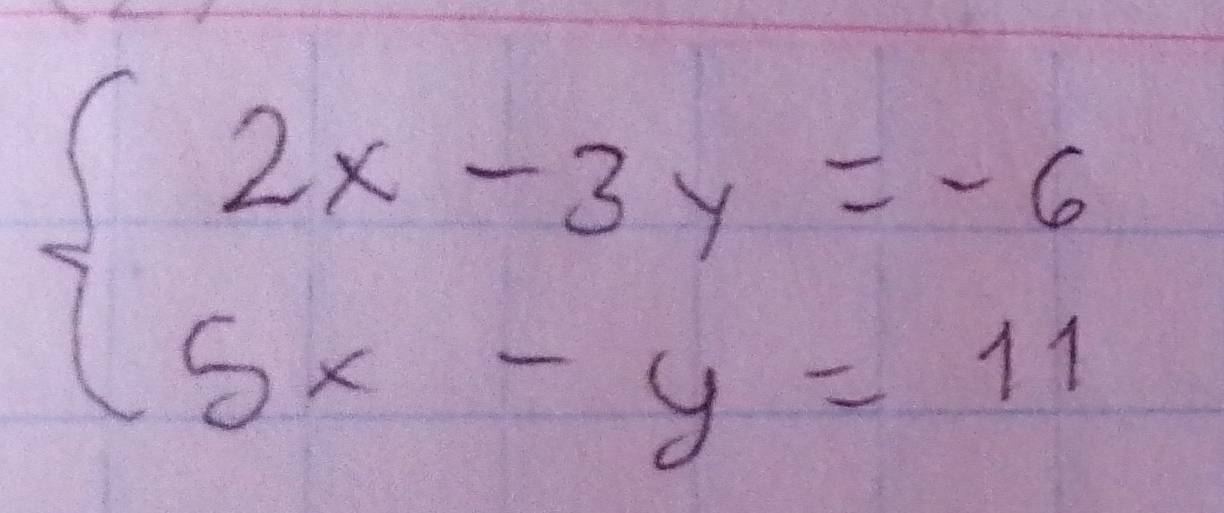 2x - 3y = - 6
5x - y = 11